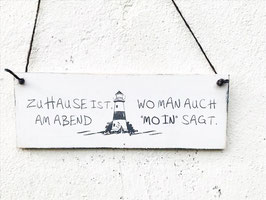 ZUHAUSE IST, WO MAN AUCH
AM ABEND "MOIN" SAGT.